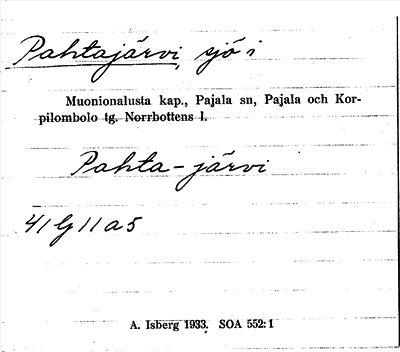 Pahtajärvi, sjö i
Muonionalusta kap., Pajala sn, Pajala och Kor-
pilombolo tg. Norrbottens l.
Pahta-järvi
41 G 11 a 5
A. Isberg 1933. SOA 552:1